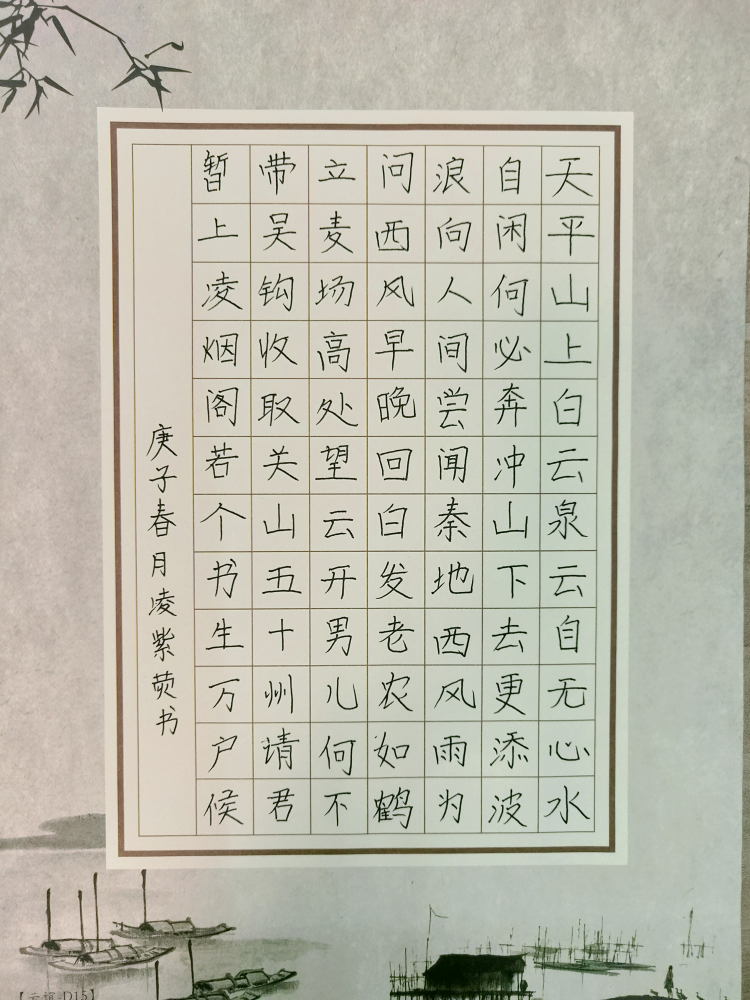 天平山上白云泉云自无心水
自闲何必奔冲山下去更添波
浪向人间尝闻秦地西风雨为
问西风早晚回白发老农如鹤
立麦场高处望云开男儿何不
带吴钩收取关山五十州请君
暂上凌烟阁若个书生万户侯
庚子春月凌紫荧书
【云馆-D15】